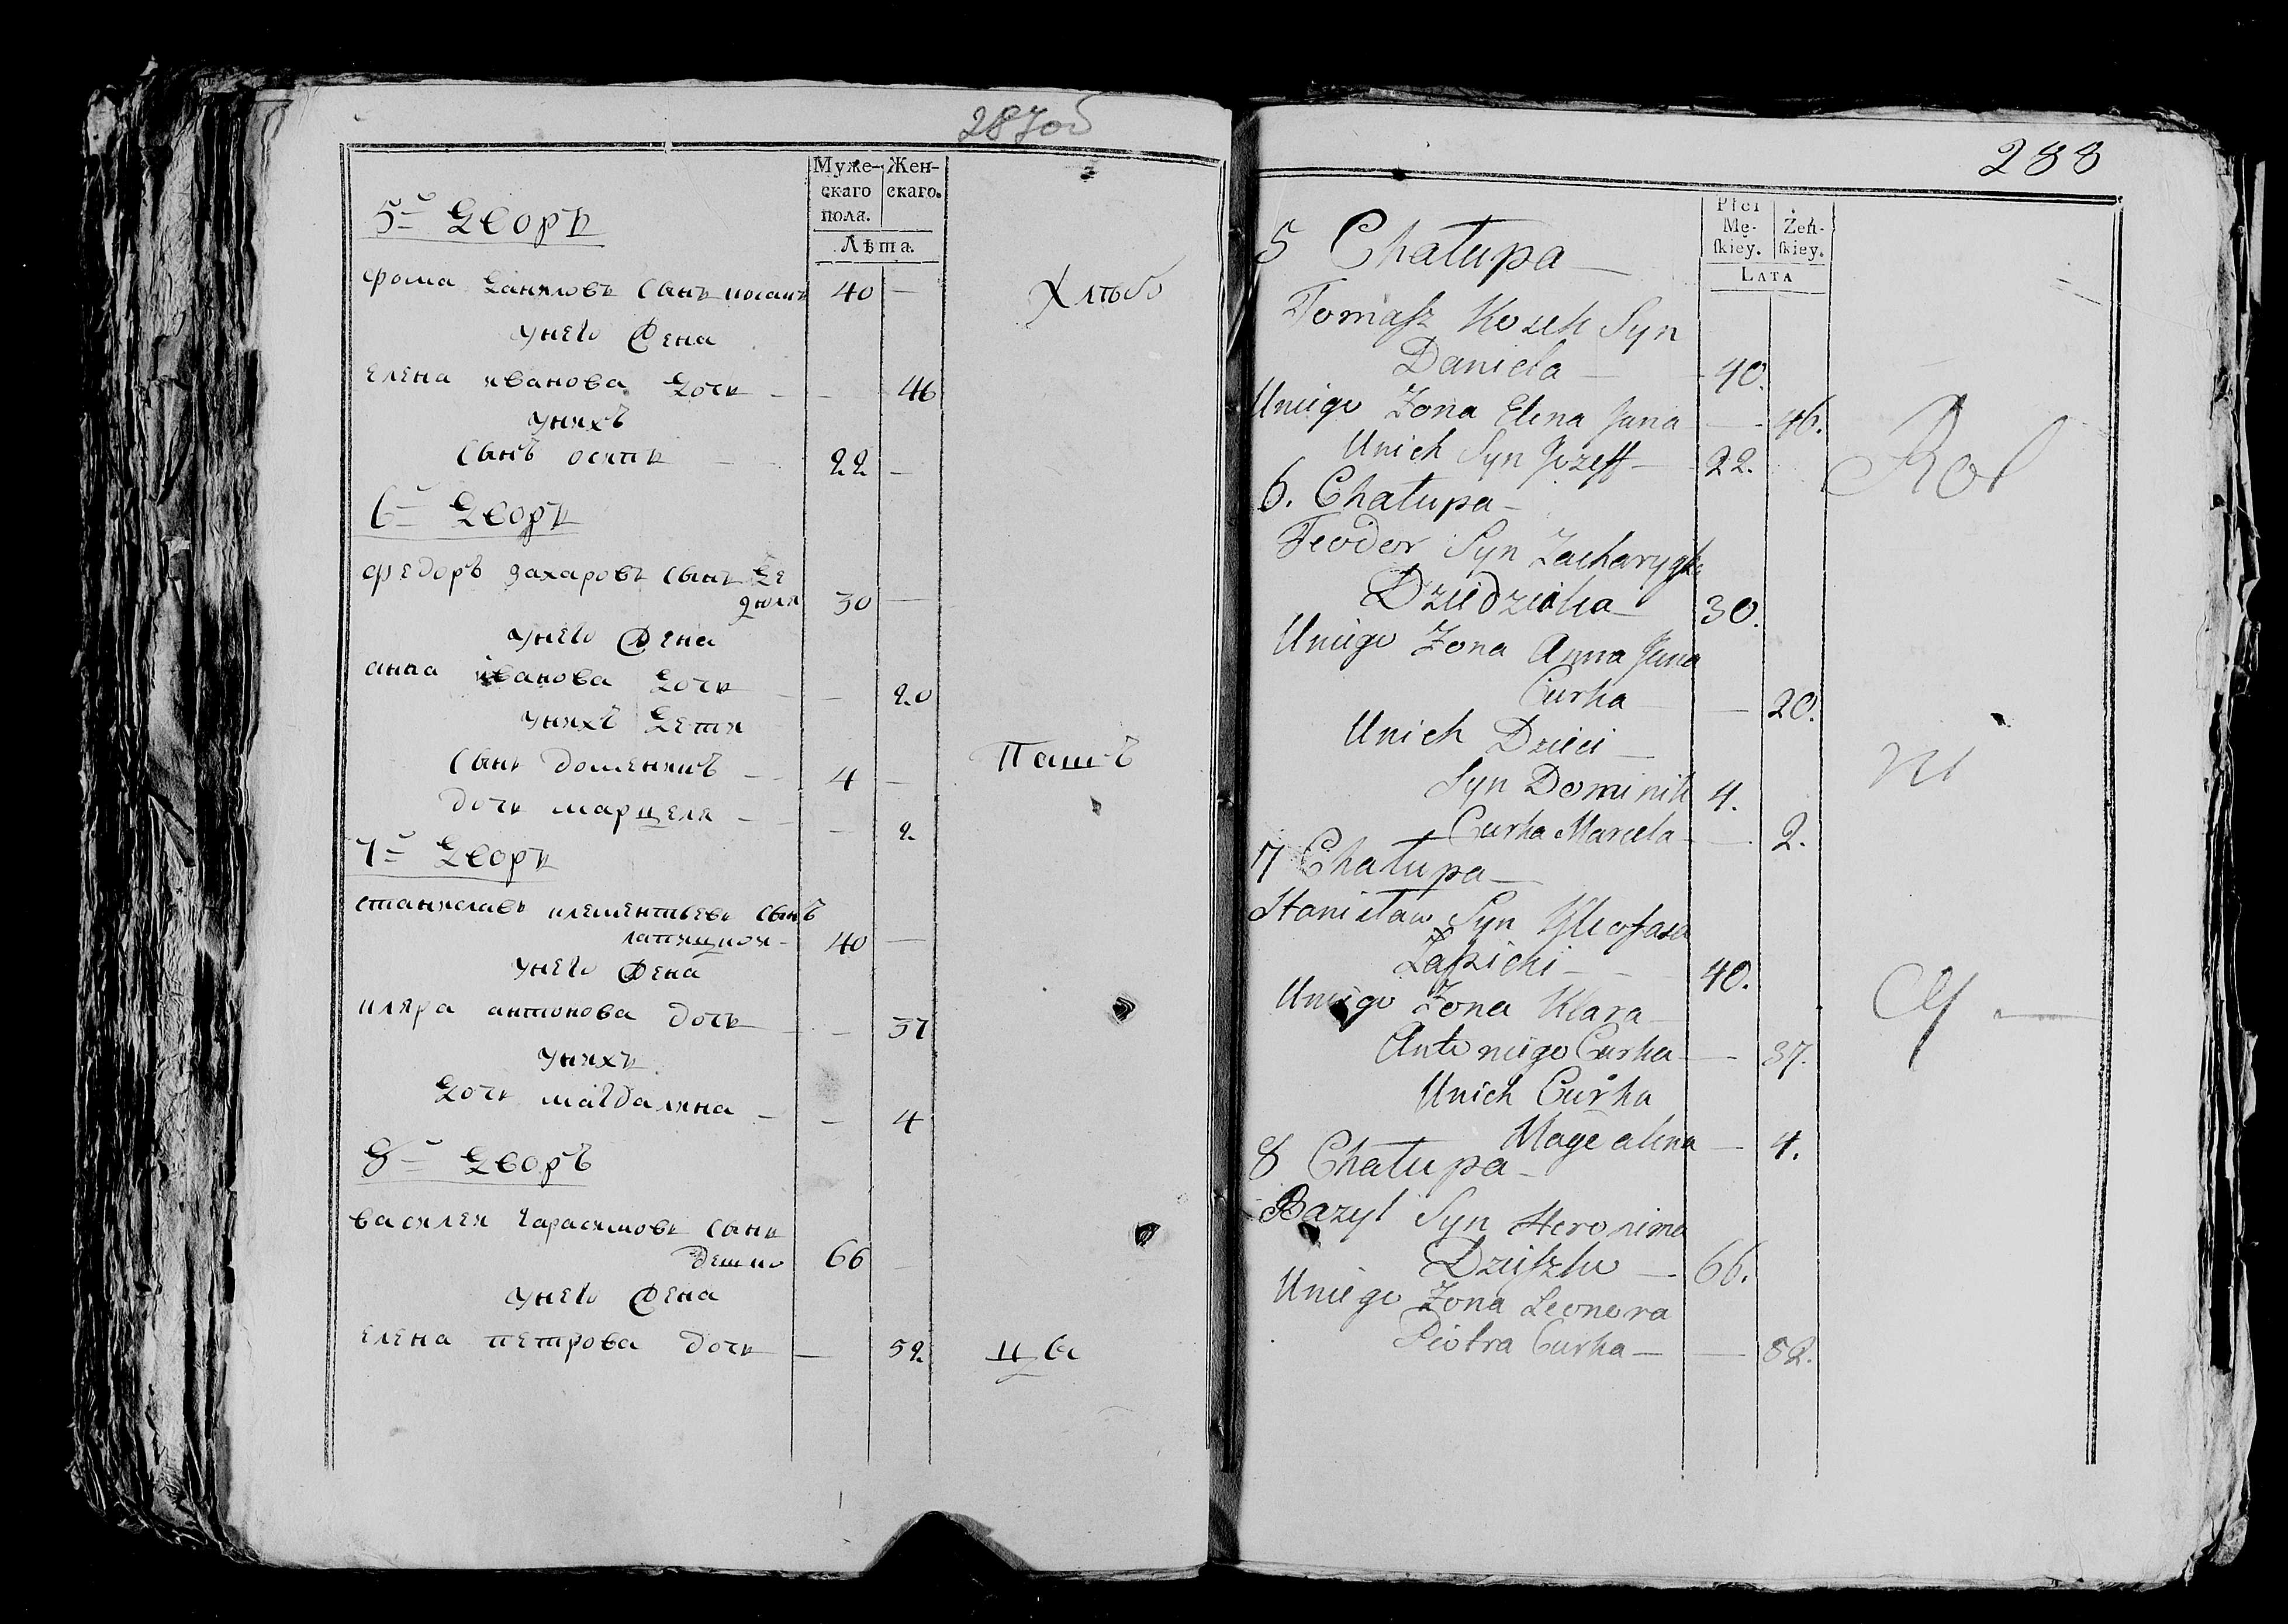 287об
Муже- Жен-
скаго скаго.
пола.
Лѣта.
5й Дворъ
Фома Даниловъ сынъ 40 —
Хлѣбо
у него жена
Елена Иванова дочь — 46
у нихъ
сынъ Осипъ 22 —
6й Дворъ
Федоръ Захаровъ сынъ Де
дюля 30 —
у него жена
Анна Иванова дочь — 20
у нихъ дети
сынъ Доменикъ 4 —
Пашъ
дочь Марцеля — 2
7й Дворъ
Станиславъ Клементьевъ сынъ
40 —
у него жена
Кляра Антонова дочь — 37
у нихъ
дочь Магдалина — 4
8й Дворъ
Василей Гарасимовъ сынъ
Дешко 66 —
у него жена
Елена Петрова дочь — 52
цы
288
Płci
Mę- Żeń-
ſkiey. ſkiey.
LATA
5 Chałupa —
Tomaſz Kozek Syn
Daniela — 40.
Uniego Żona Elena Jana — 46.
Unich Syn Jozeff — 22.
Rol
6. Chałupa —
Teodor Syn Zacharyaſza
30.
Uniego Żona Anna Jana
Curka — 20.
Unich Dzieci —
ni
Syn Dominik 4.
Curka Marcela — 2.
7 Chałupa —
Stanisław Syn Kleofasa
Łapicki — 40.
Uniego Żona Klara —
cy —
Antoniego Curka — 37.
Unich Curka
Magdalena — 4.
8 Chałupa —
Bazyl Syn Heronima
Dzieſzko — 66.
Uniego Żona Leonora
Piotra Curka — 52.